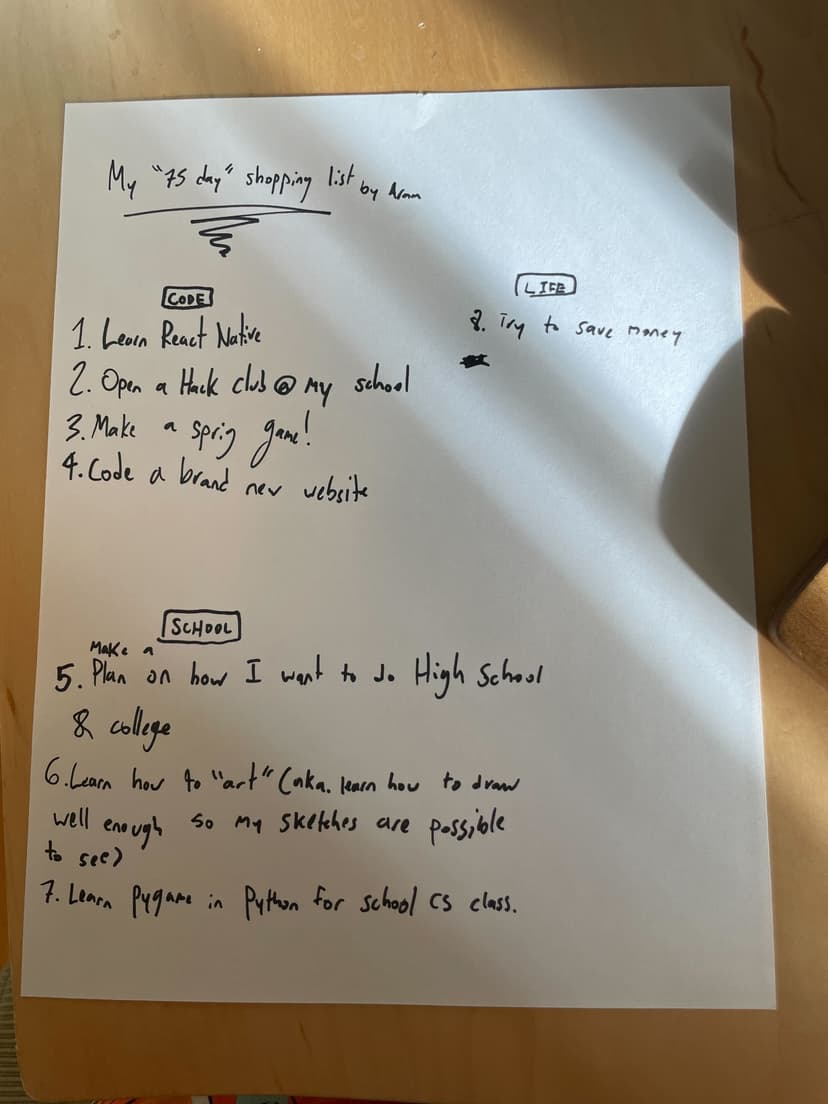 My "75 day" shopping list by Aram
CODE
1. Learn React Native
2. Open a Hack club @ my school
3. Make a sprig game!
4. Code a brand new website
LIFE
8. Try to save money
SCHOOL
Make a
5. Plan on how I want to do High School
& college
6. Learn how to "art" (aka. learn how to draw
well enough so my sketches are possible
to see)
7. Learn Pygame in Python for school CS class.